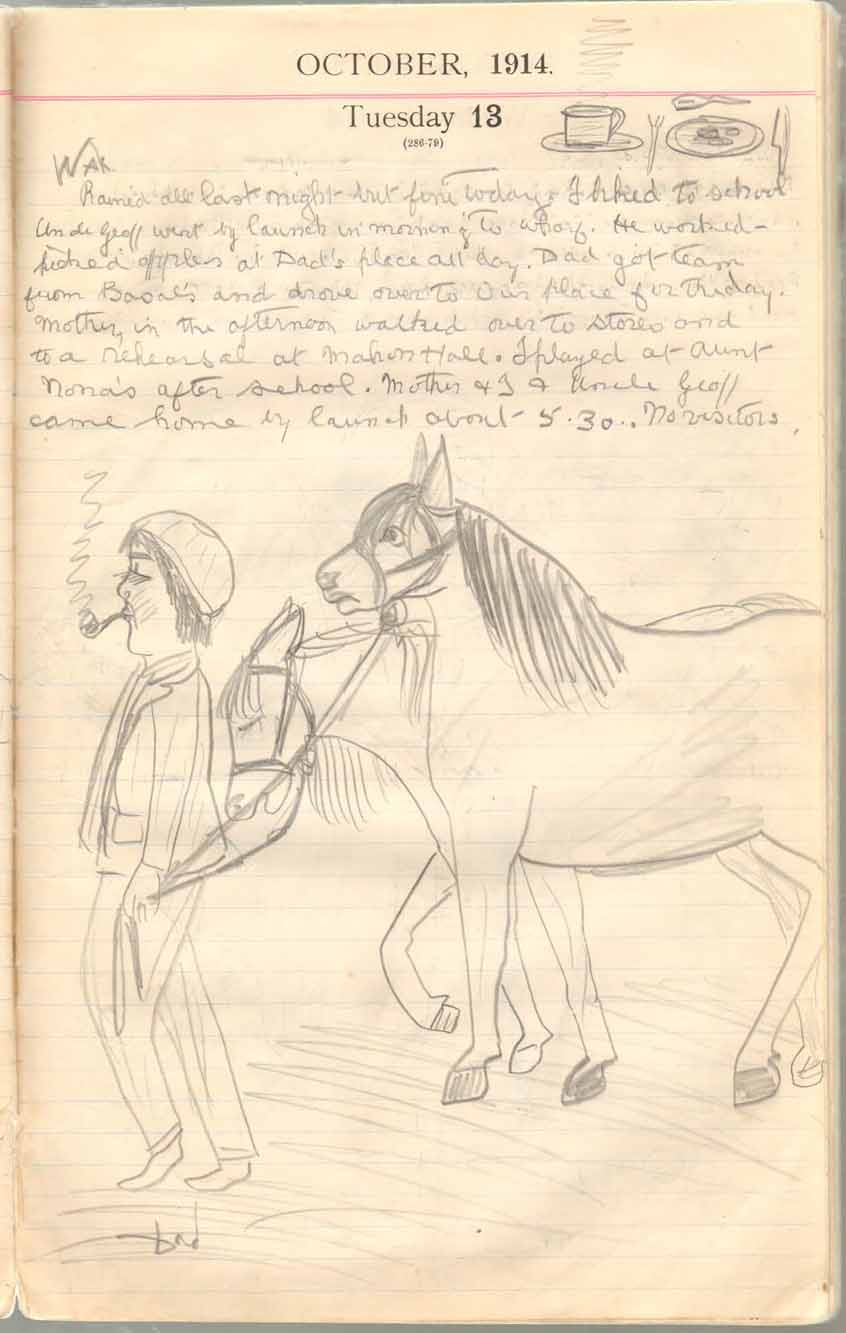 OCTOBER, 1914.
Tuesday 13
(286-79)
WAR.
Rained all last night but fine today. I hiked to school
Uncle Geoff went by launch in morning to wharf. He worked-
picked apples at Dad's place all day. Dad got team
from Basal's and drove over to our place for the day.
Mother, in the afternoon walked over to stores and
to a rehearsal at Mahon Hall. I played at Aunt
Nona's after school. Mother & I & Uncle Geoff
came home by launch about 5.30.. No visitors.
Dad